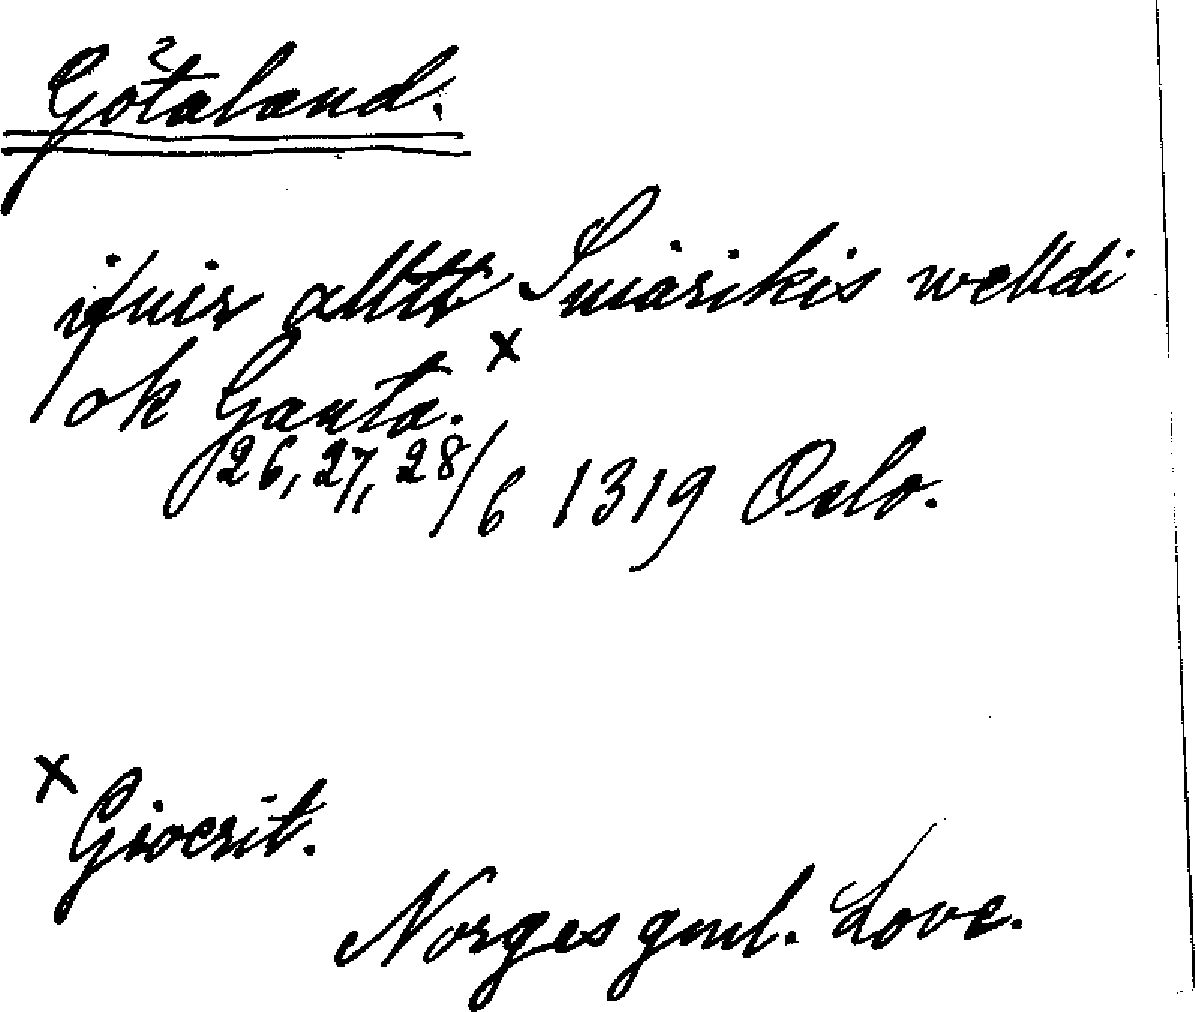 Götaland.
ifuir alltt Suiarikis welldi
ok Gauta. x
26, 27, 28/6 1319 Oslo.
x Gioerit.
Norges gml. Love.